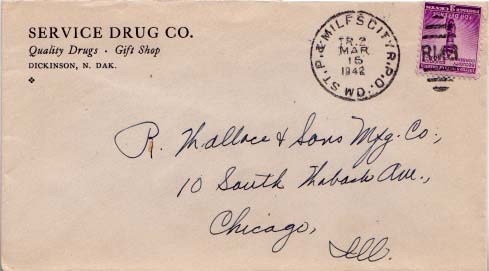 SERVICE DRUG CO.
Quality Drugs · Gift Shop
DICKINSON, N. DAK.
ST. P. & MILES CITY R.P.O. WD
TR. 2
MAR
15
1942
R.M.S
R. Wallace & Sons Mfg. Co.,
10 South Wabash Ave.,
Chicago,
Ill.